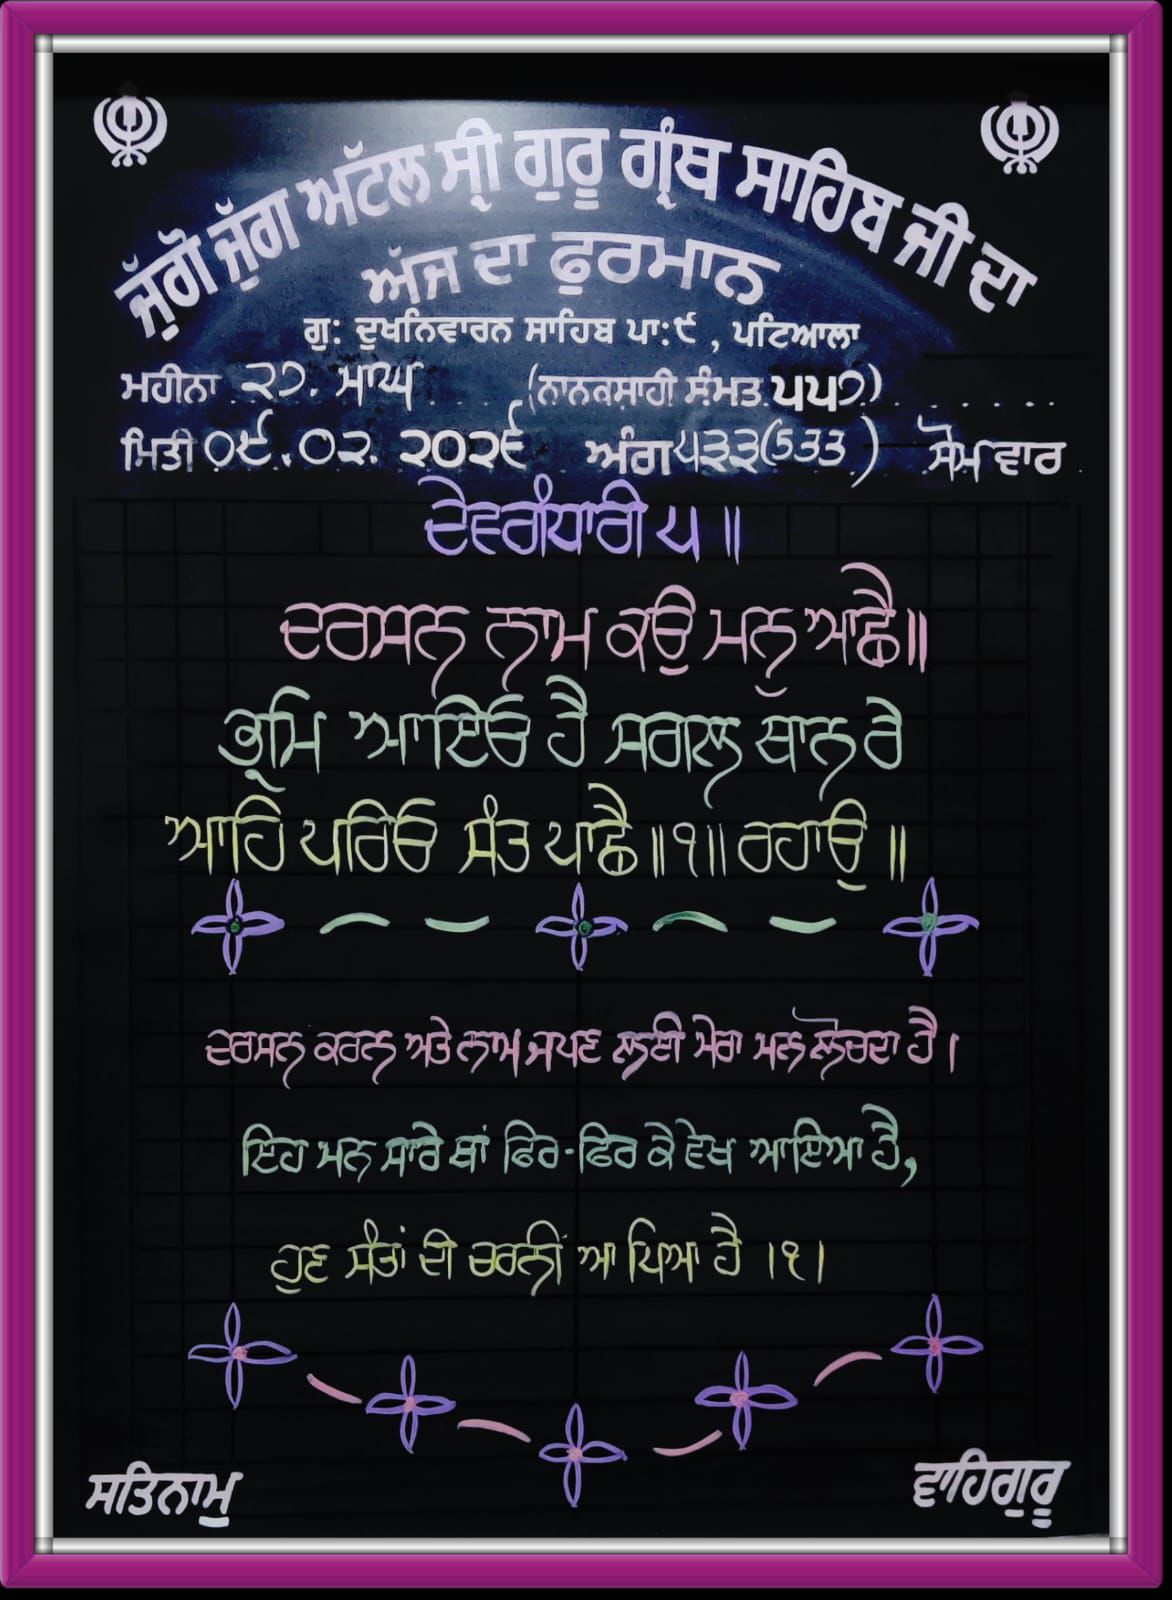 ਜੁੱਗੋ ਜੁੱਗ ਅਟੱਲ ਸ੍ਰੀ ਗੁਰੂ ਗ੍ਰੰਥ ਸਾਹਿਬ ਜੀ ਦਾ
ਅੱਜ ਦਾ ਫੁਰਮਾਨ
ਗੁ: ਦੂਖਨਿਵਾਰਨ ਸਾਹਿਬ ਪਾ:੯ , ਪਟਿਆਲਾ
ਮਹੀਨਾ ੨੭. ਮਾਘ (ਨਾਨਕਸ਼ਾਹੀ ਸੰਮਤ ੫੫੭)
ਮਿਤੀ ੦੯.੦੨.੨੦੨੬ ਅੰਗ ੫੩੩(533) ਸੋਮ ਵਾਰ
ਦੇਵਗੰਧਾਰੀ ੫ ॥
ਦਰਸਨ ਨਾਮ ਕਉ ਮਨੁ ਆਛੈ॥
ਭ੍ਰਮਿ ਆਇਓ ਹੈ ਸਗਲ ਥਾਨ ਰੇ
ਆਹਿ ਪਰਿਓ ਸੰਤ ਪਾਛੈ ॥੧॥ ਰਹਾਉ ॥
ਦਰਸਨ ਕਰਨ ਅਤੇ ਨਾਮ ਜਪਣ ਲਈ ਮੇਰਾ ਮਨ ਲੋਚਦਾ ਹੈ ।
ਇਹ ਮਨ ਸਾਰੇ ਥਾਂ ਫਿਰ-ਫਿਰ ਕੇ ਵੇਖ ਆਇਆ ਹੈ,
ਹੁਣ ਸੰਤਾਂ ਦੀ ਚਰਨੀਂ ਆ ਪਿਆ ਹੈ ।੧।
ਸਤਿਨਾਮੁ ਵਾਹਿਗੁਰੂ